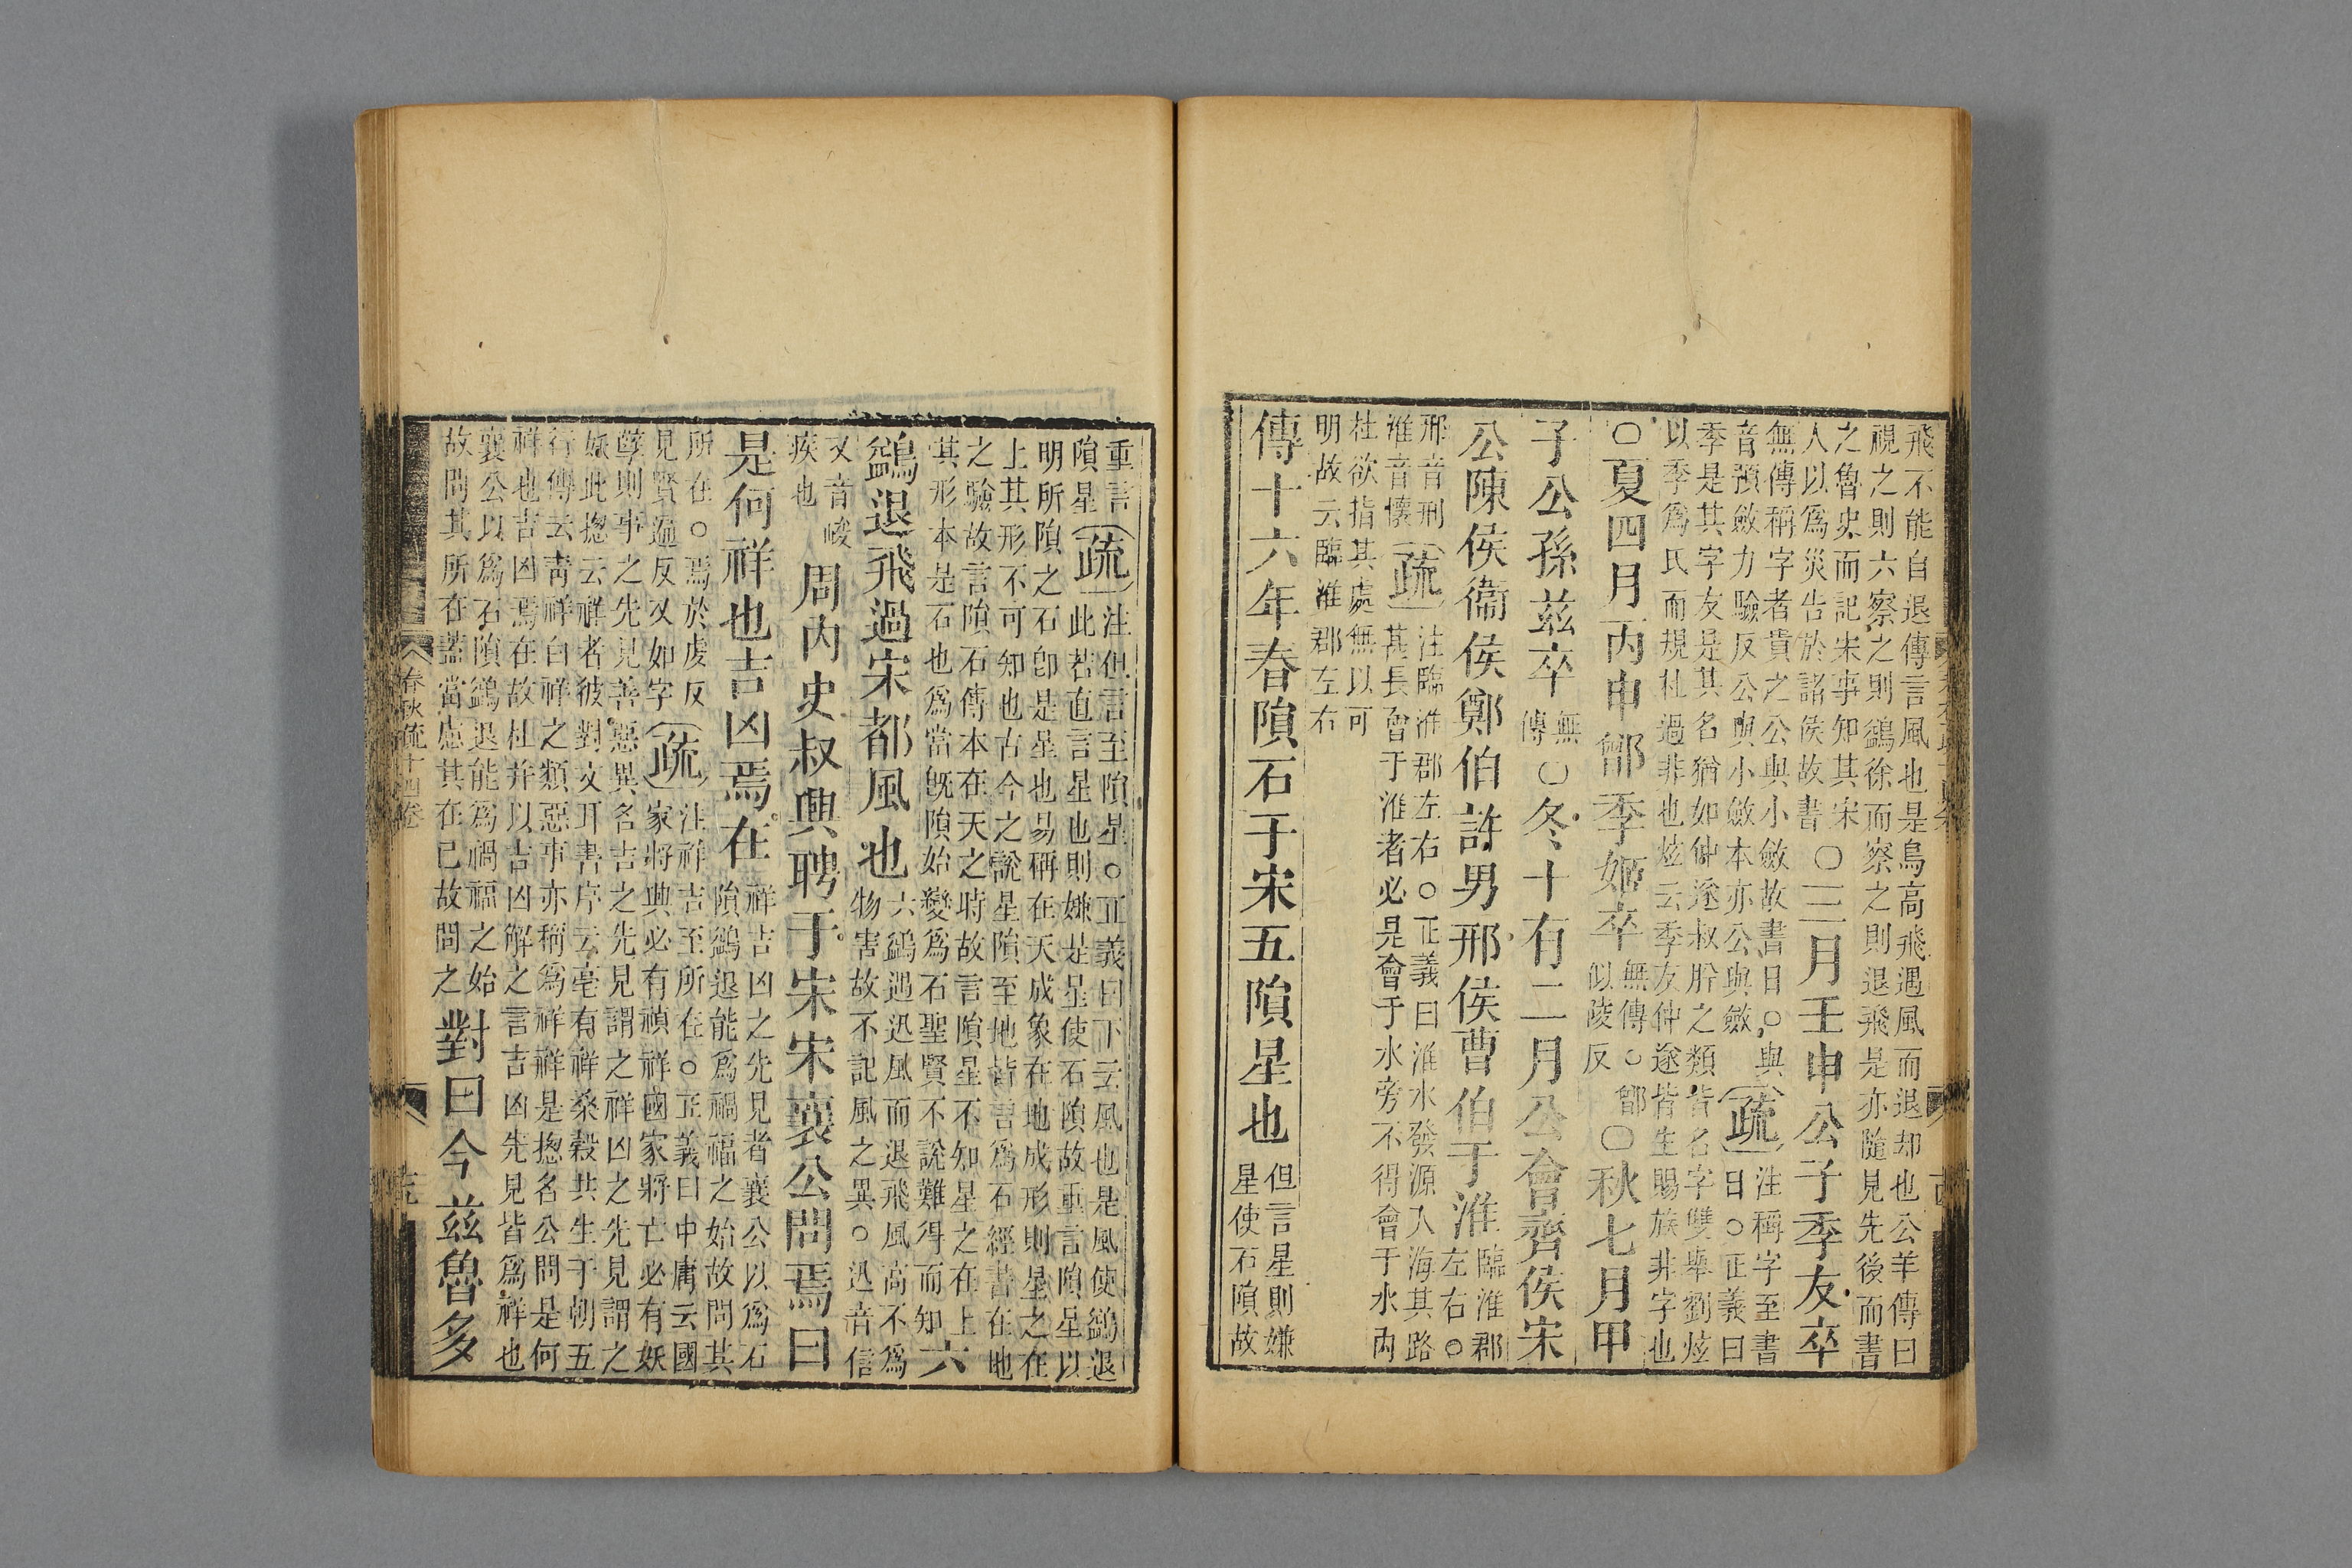 飛不能自退傳言風也是鳥高飛遇風而退却也公羊傳曰
視之則六察之則鷁徐而察之則退飛是亦隨見先後而書
之魯史而記宋事知其宋
人以爲災告於諸侯故書
○三月壬申公子季友卒
無傳稱字者貴之公與小斂故書日○與
音預斂力驗反公與小斂本亦公與斂
疏
注稱字至書
日○正義曰
季是其字友是其名猶如仲遂叔肸之類皆名字雙舉劉炫
以季爲氏而規杜過非也炫云季友仲遂皆生賜族非字也
○夏四月丙申鄫季姬卒
無傳○鄫
似陵反
○秋七月甲
子公孫茲卒
無
傳
○冬十有二月公會齊侯宋
公陳侯衞侯鄭伯許男邢侯曹伯于淮
臨淮郡
左右○
邢音刑
淮音懷
疏
注臨淮郡左右○正義曰淮水發源入海其路
甚長會于淮者必是會于水旁不得會于水內
杜欲指其處無以可
明故云臨淮郡左右
傳十六年春隕石于宋五隕星也
但言星則嫌
星使石隕故
重言
隕星
疏
注但言至隕星○正義曰下云風也是風使鷁退
此若直言星也則嫌是星使石隕故重言隕星以
明所隕之石卽是星也易稱在天成象在地成形則星之在
上其形不可知也古今之說星隕至地皆言爲石經書在地
之驗故言隕石傳本在天之時故言隕星不知星之在上
其形本是石也爲當旣隕始變爲石聖賢不說難得而知
六
鷁退飛過宋都風也
六鷁遇迅風而退飛風高不爲
物害故不記風之異○迅音信
又音峻
疾也
周內史叔興聘于宋宋襄公問焉曰
是何祥也吉凶焉在
祥吉凶之先見者襄公以爲石
隕鷁退能爲禍福之始故問其
所在○焉於虔反
見賢遍反又如字
疏
注祥吉至所在○正義曰中庸云國
家將興必有禎祥國家將亡必有妖
孽則事之先見善惡異名吉之先見謂之祥凶之先見謂之
妖此揔云祥者彼對文耳書序云亳有祥桑榖共生于朝五
行傳云靑祥白祥之類惡事亦稱爲祥祥是揔名公問是何
祥也吉凶焉在故杜并以吉凶解之言吉凶先見皆爲祥也
襄公以爲石隕鷁退能爲禍福之始
故問其所在蓋當慮其在己故問之
對曰今茲魯多
春秋疏十四卷